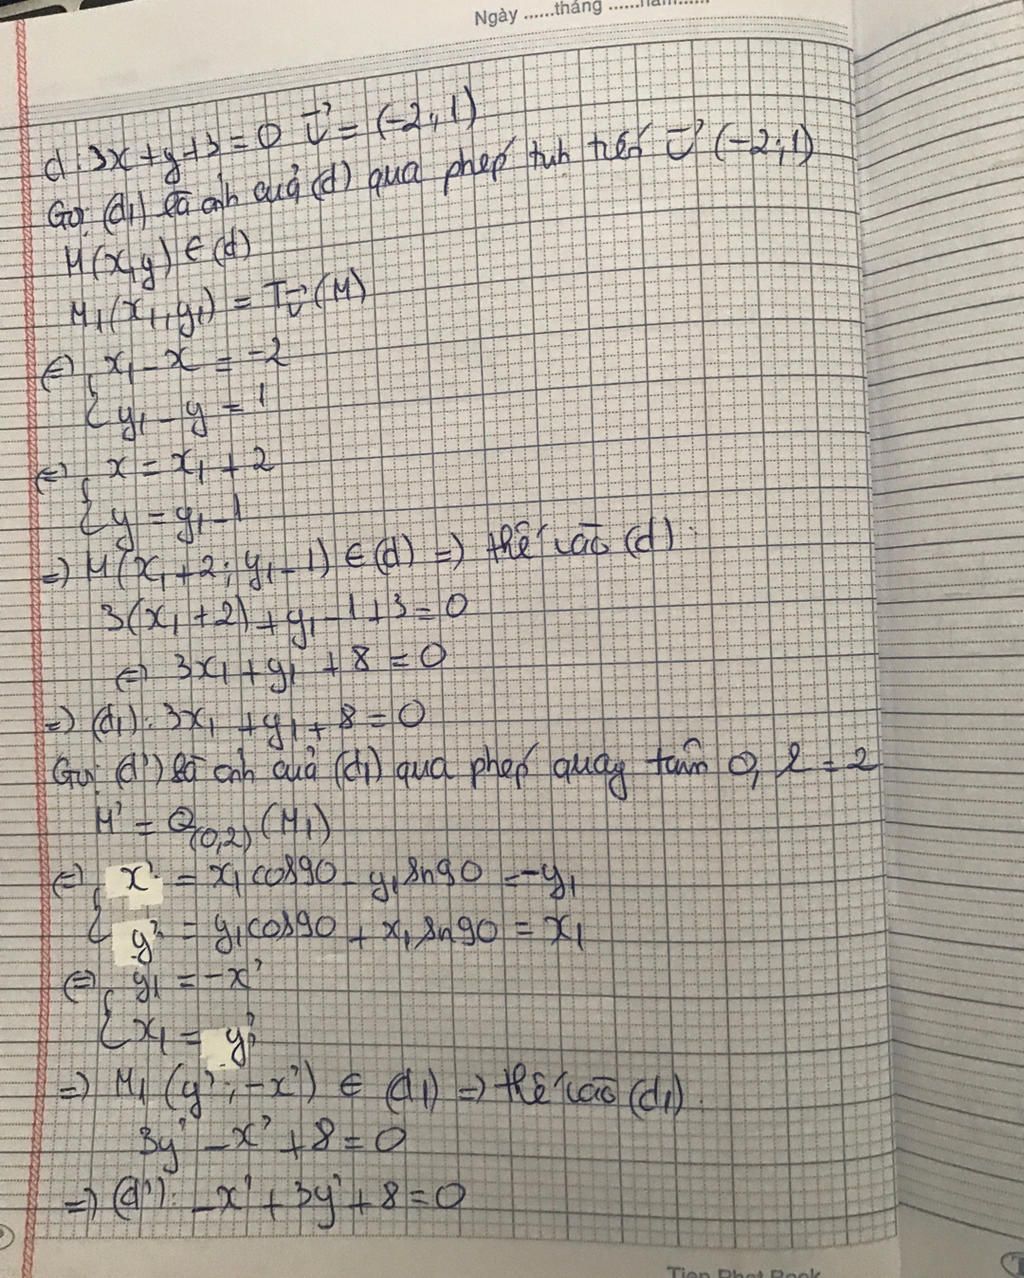 Ngày ......tháng ......năm......
d: 3x + y + 3 = 0 v⃗ = (-2; 1)
Gọi (d1) là ảnh của (d) qua phép tịnh tiến v⃗ (-2; 1)
M(x,y) ∈ (d)
M1(x1, y1) = Tv⃗ (M)
⇔ { x1 - x = -2
y1 - y = 1
⇔ { x = x1 + 2
y = y1 - 1
=> M(x1 + 2; y1 - 1) ∈ (d) => thế vào (d):
3(x1 + 2) + y1 - 1 + 3 = 0
⇔ 3x1 + y1 + 8 = 0
=> (d1): 3x1 + y1 + 8 = 0
Gọi (d') là ảnh của (d1) qua phép quay tâm O, l = 2
M' = Q(0,2) (M1)
⇔ { x' = x1cos90 - y1sin90 = -y1
y' = y1cos90 + x1sin90 = x1
⇔ { y1 = -x'
x1 = y'
=> M1 (y'; -x') ∈ (d1) => thế vào (d1):
3y' - x' + 8 = 0
=> (d'): -x' + 3y' + 8 = 0